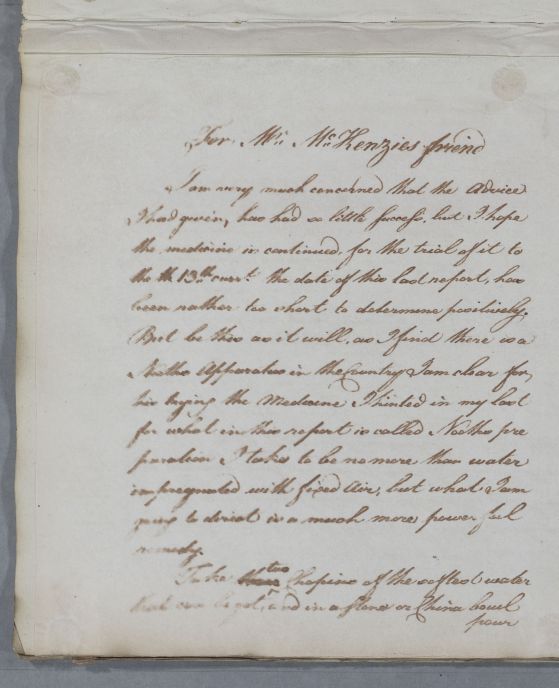 For Mr. McKenzies friend
I am very much concerned that the advice
I had given, has had so little success, but I hope
the medicine is continued, for the trial of it to
the 13th currt. the date of this last report, has
been rather too short to determine positively.
But be this as it will, as I find there is a
Nooths Apparatus in the Country I am clear for
his trying the Medecine I hinted in my last
for what in this report is called Nooths pre
paration I take to be no more than water
impregnated with fixed Air, but what I am
going to direct is a much more power ful
remedy.
Take two Chopins of the softest water
that can be got, and in a stone or China bowl
pour